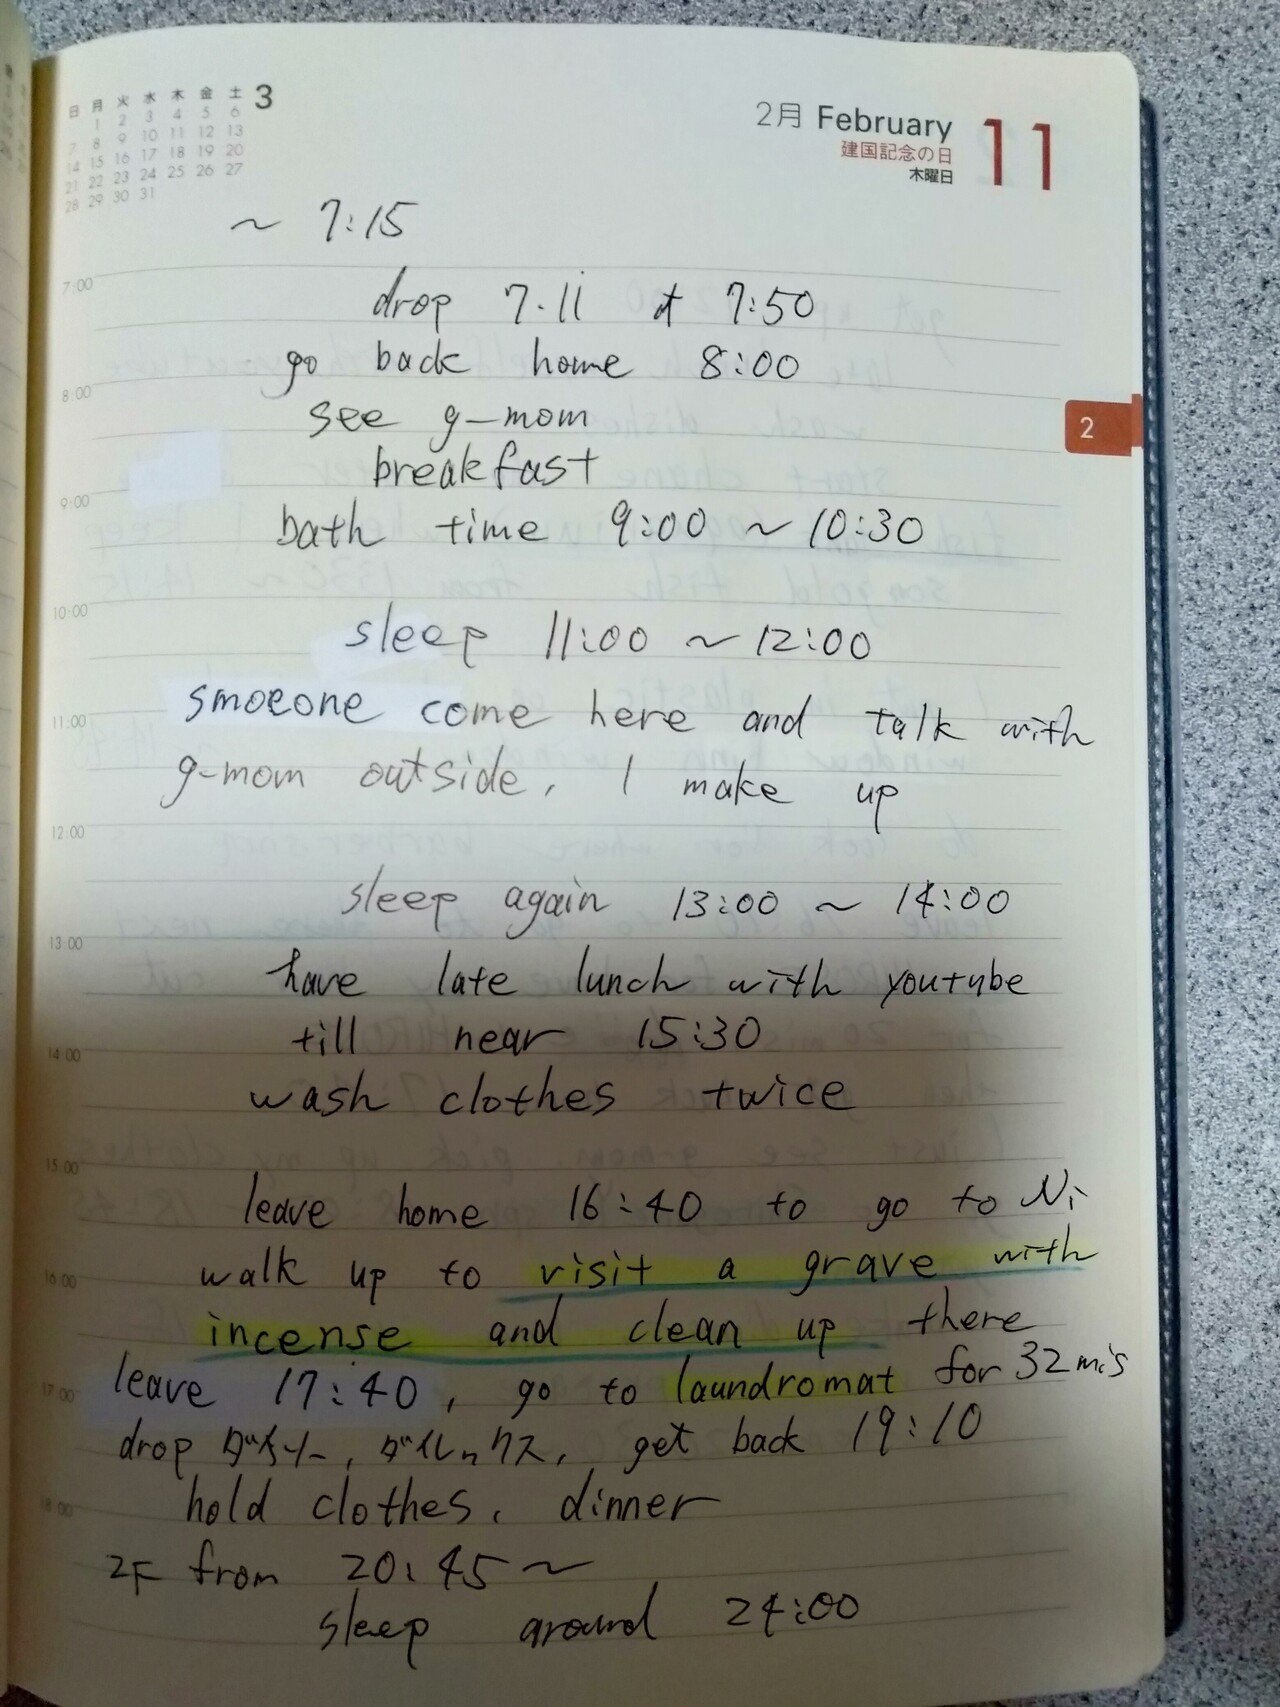 3
日 月 火 水 木 金 土
1 2 3 4 5 6
7 8 9 10 11 12 13
14 15 16 17 18 19 20
21 22 23 24 25 26 27
28 29 30 31
2月 February 11
建国記念の日
木曜日
~ 7:15
7:00
drop 7.11 at 7:50
go back home 8:00
8:00
see g-mom
2
breakfast
9:00
bath time 9:00 ~ 10:30
10:00
sleep 11:00 ~ 12:00
smoeone come here and talk with
11:00
g-mom outside, I make up
12:00
sleep again 13:00 ~ 14:00
13:00
have late lunch with youtube
till near 15:30
14:00
wash clothes twice
15:00
leave home 16:40 to go to Ni
walk up to visit a grave with
16:00
incense and clean up there
leave 17:40, go to laundromat for 32 mis
17:00
drop ダイソー, ダイレックス, get back 19:10
hold clothes, dinner
18:00
2F from 20:45 ~
sleep around 24:00